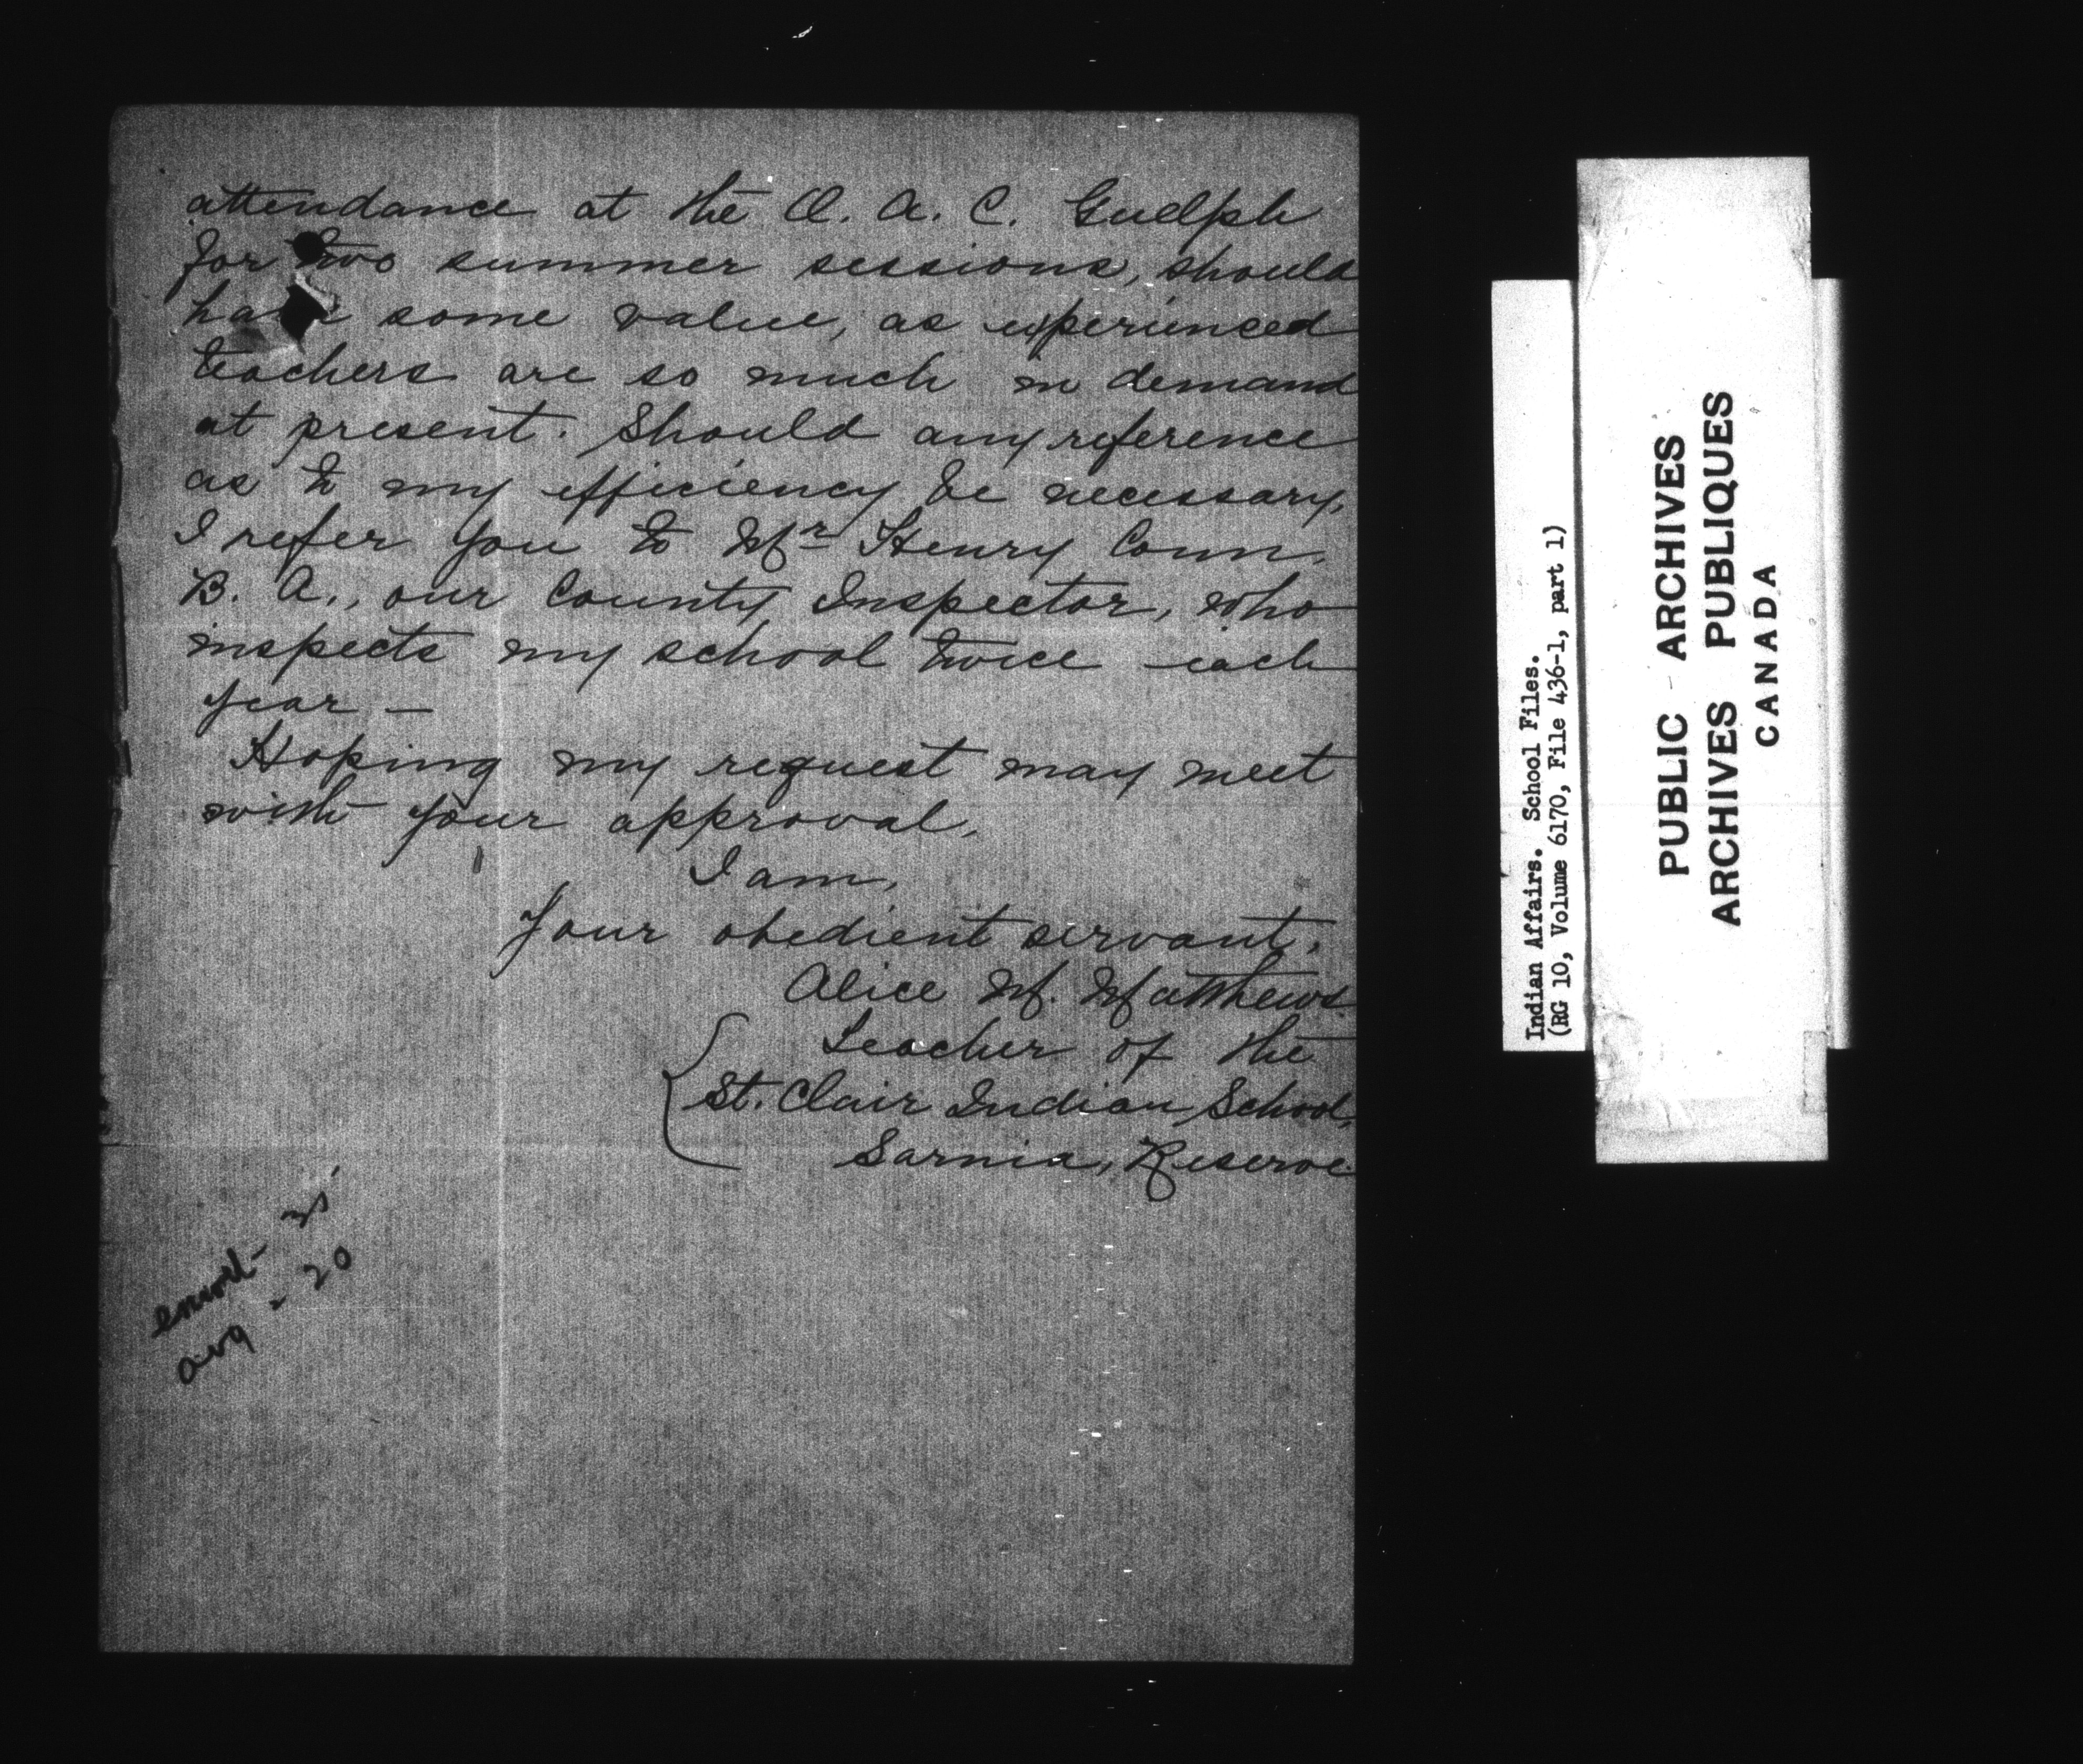 attendance at the O. A. C. Guelph
for two summer sessions, should
have some value, as experienced
teachers are so much in demand
at present. Should any reference
as to my efficiency be necessary,
I refer you to Mr Henry Conn,
B. A., our County Inspector, who
inspects my school twice each
year –
Hoping my request may meet
with your approval,
I am,
Your obedient servant,
Alice M. Matthews.
Teacher of the
St. Clair Indian School,
Sarnia, Reserve.
enrolt -
avg - 20
Indian Affairs. School Files.
(RG 10, Volume 6170, File 436-1, part 1)
PUBLIC ARCHIVES
ARCHIVES PUBLIQUES
CANADA